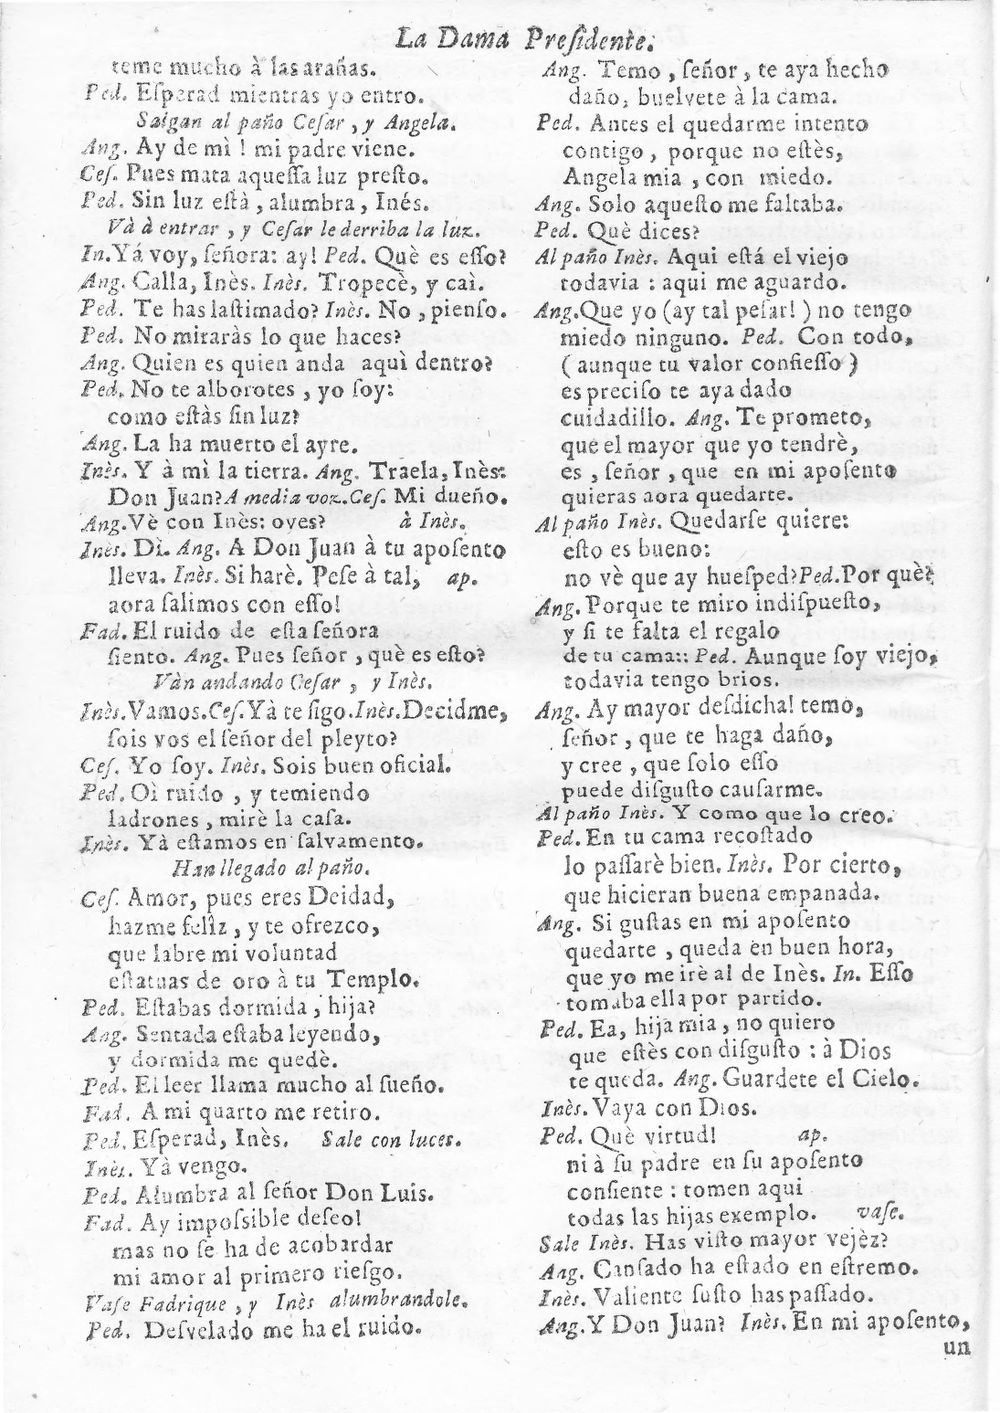 La Dama Preſidente.
teme mucho à las arañas.
Ped. Eſperad mientras yo entro.
Salgan al paño Ceſar, y Angela.
Ang. Ay de mì! mi padre viene.
Ceſ. Pues mata aqueſſa luz preſto.
Ped. Sin luz eſtà, alumbra, Inés.
Và à entrar, y Ceſar le derriba la luz.
In. Yá voy, ſeñora: ay! Ped. Què es eſſo?
Ang. Calla, Inès. Inès. Tropecè, y caì.
Ped. Te has laſtimado? Inès. No, pienſo.
Ped. No miraràs lo que haces?
Ang. Quien es quien anda aquì dentro?
Ped. No te alborotes, yo ſoy:
como eſtàs ſin luz?
Ang. La ha muerto el ayre.
Inès. Y à mì la tierra. Ang. Traela, Inès:
Don Juan? A media voz. Ceſ. Mi dueño.
Ang. Vè con Inès: oyes? à Inès.
Inès. Dì. Ang. A Don Juan à tu apoſento
lleva. Inès. Si harè. Peſe à tal, ap.
aora ſalimos con eſſo!
Fad. El ruido de eſta ſeñora
ſiento. Ang. Pues ſeñor, què es eſto?
Vàn andando Ceſar, y Inès.
Inès. Vamos. Ceſ. Yà te ſigo. Inès. Decidme,
ſois vos el ſeñor del pleyto?
Ceſ. Yo ſoy. Inès. Sois buen oficial.
Ped. Oì ruido, y temiendo
ladrones, mirè la caſa.
Inès. Yà eſtamos en ſalvamento.
Han llegado al paño.
Ceſ. Amor, pues eres Deidad,
hazme feliz, y te ofrezco,
que labre mi voluntad
eſtatuas de oro à tu Templo.
Ped. Eſtabas dormida, hija?
Ang. Sentada eſtaba leyendo,
y dormida me quedè.
Ped. El leer llama mucho al ſueño.
Fad. A mi quarto me retiro.
Ped. Eſperad, Inès. Sale con luces.
Inès. Yà vengo.
Ped. Alumbra al ſeñor Don Luis.
Fad. Ay impoſsible deſeo!
mas no ſe ha de acobardar
mi amor al primero rieſgo.
Vaſe Fadrique, y Inès alumbrandole.
Ped. Deſvelado me ha el ruido.
Ang. Temo, ſeñor, te aya hecho
daño, buelvete à la cama.
Ped. Antes el quedarme intento
contigo, porque no eſtès,
Angela mia, con miedo.
Ang. Solo aqueſto me faltaba.
Ped. Què dices?
Al paño Inès. Aqui eſtá el viejo
todavia: aqui me aguardo.
Ang. Que yo (ay tal peſar!) no tengo
miedo ninguno. Ped. Con todo,
(aunque tu valor confieſſo)
es preciſo te aya dado
cuidadillo. Ang. Te prometo,
que el mayor que yo tendrè,
es, ſeñor, que en mi apoſento
quieras aora quedarte.
Al paño Inès. Quedarſe quiere:
eſto es bueno:
no vè que ay hueſped? Ped. Por què?
Ang. Porque te miro indiſpueſto,
y ſi te falta el regalo
de tu cama:: Ped. Aunque ſoy viejo,
todavia tengo brios.
Ang. Ay mayor deſdicha! temo,
ſeñor, que te haga daño,
y cree, que ſolo eſſo
puede diſguſto cauſarme.
Al paño Inès. Y como que lo creo.
Ped. En tu cama recoſtado
lo paſſarè bien. Inès. Por cierto,
que hicieran buena empanada.
Ang. Si guſtas en mi apoſento
quedarte, queda en buen hora,
que yo me irè al de Inès. In. Eſſo
tomaba ella por partido.
Ped. Ea, hija mia, no quiero
que eſtès con diſguſto: à Dios
te queda. Ang. Guardete el Cielo.
Inès. Vaya con Dios.
Ped. Què virtud! ap.
ni à ſu padre en ſu apoſento
conſiente: tomen aqui
todas las hijas exemplo. vaſe.
Sale Inès. Has viſto mayor vejèz?
Ang. Canſado ha eſtado en eſtremo.
Inès. Valiente ſuſto has paſſado.
Ang. Y Don Juan? Inès. En mi apoſento,
un